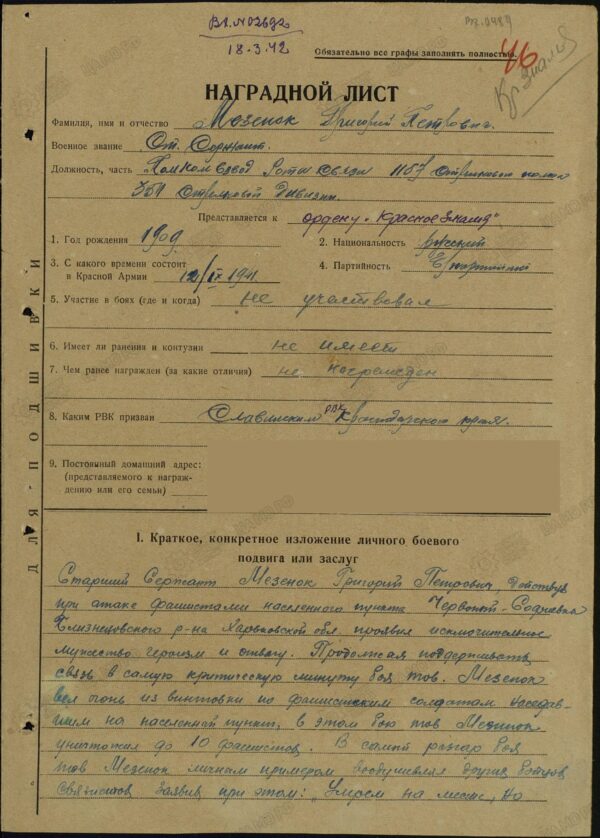 Вх. № 02692
18.3.42
46
Кр Знамя
Обязательно все графы заполнять полностью.
НАГРАДНОЙ ЛИСТ
Фамилия, имя и отчество Мезенок Григорий Петрович.
Военное звание Ст. Сержант.
Должность, часть Помкомвзвод Роты Связи 1157 Стрелкового полка
351 Стрелковой Дивизии.
Представляется к ордену „Красное Знамя"
1. Год рождения 1909
2. Национальность русский
3. С какого времени состоит
в Красной Армии 1941
4. Партийность б/партийный
5. Участие в боях (где и когда) не участвовал
6. Имеет ли ранения и контузии не имеет
7. Чем ранее награжден (за какие отличия) не награжден
8. Каким РВК призван Славянским РВК Краснодарского края.
9. Постоянный домашний адрес:
(представляемого к награж-
дению или его семьи)
ДЛЯ ПОДШИВКИ
I. Краткое, конкретное изложение личного боевого
подвига или заслуг
Старший Сержант Мезенок Григорий Петрович, действуя
при атаке фашистами населенного пункта Червоная-Софиевка
Близнецовского р-на Харьковской обл. проявил исключительное
мужество героизм и отвагу. Продолжая поддерживать
связь в самую критическую минуту боя тов. Мезенок
вел огонь из винтовки по фашистским солдатам наседав-
шим на населенный пункт, в этом бою тов Мезенок
уничтожил до 10 фашистов. В самый разгар боя
тов Мезенок личным примером воодушевлял других бойцов
связистов заявив при этом: „Умрем на месте, но